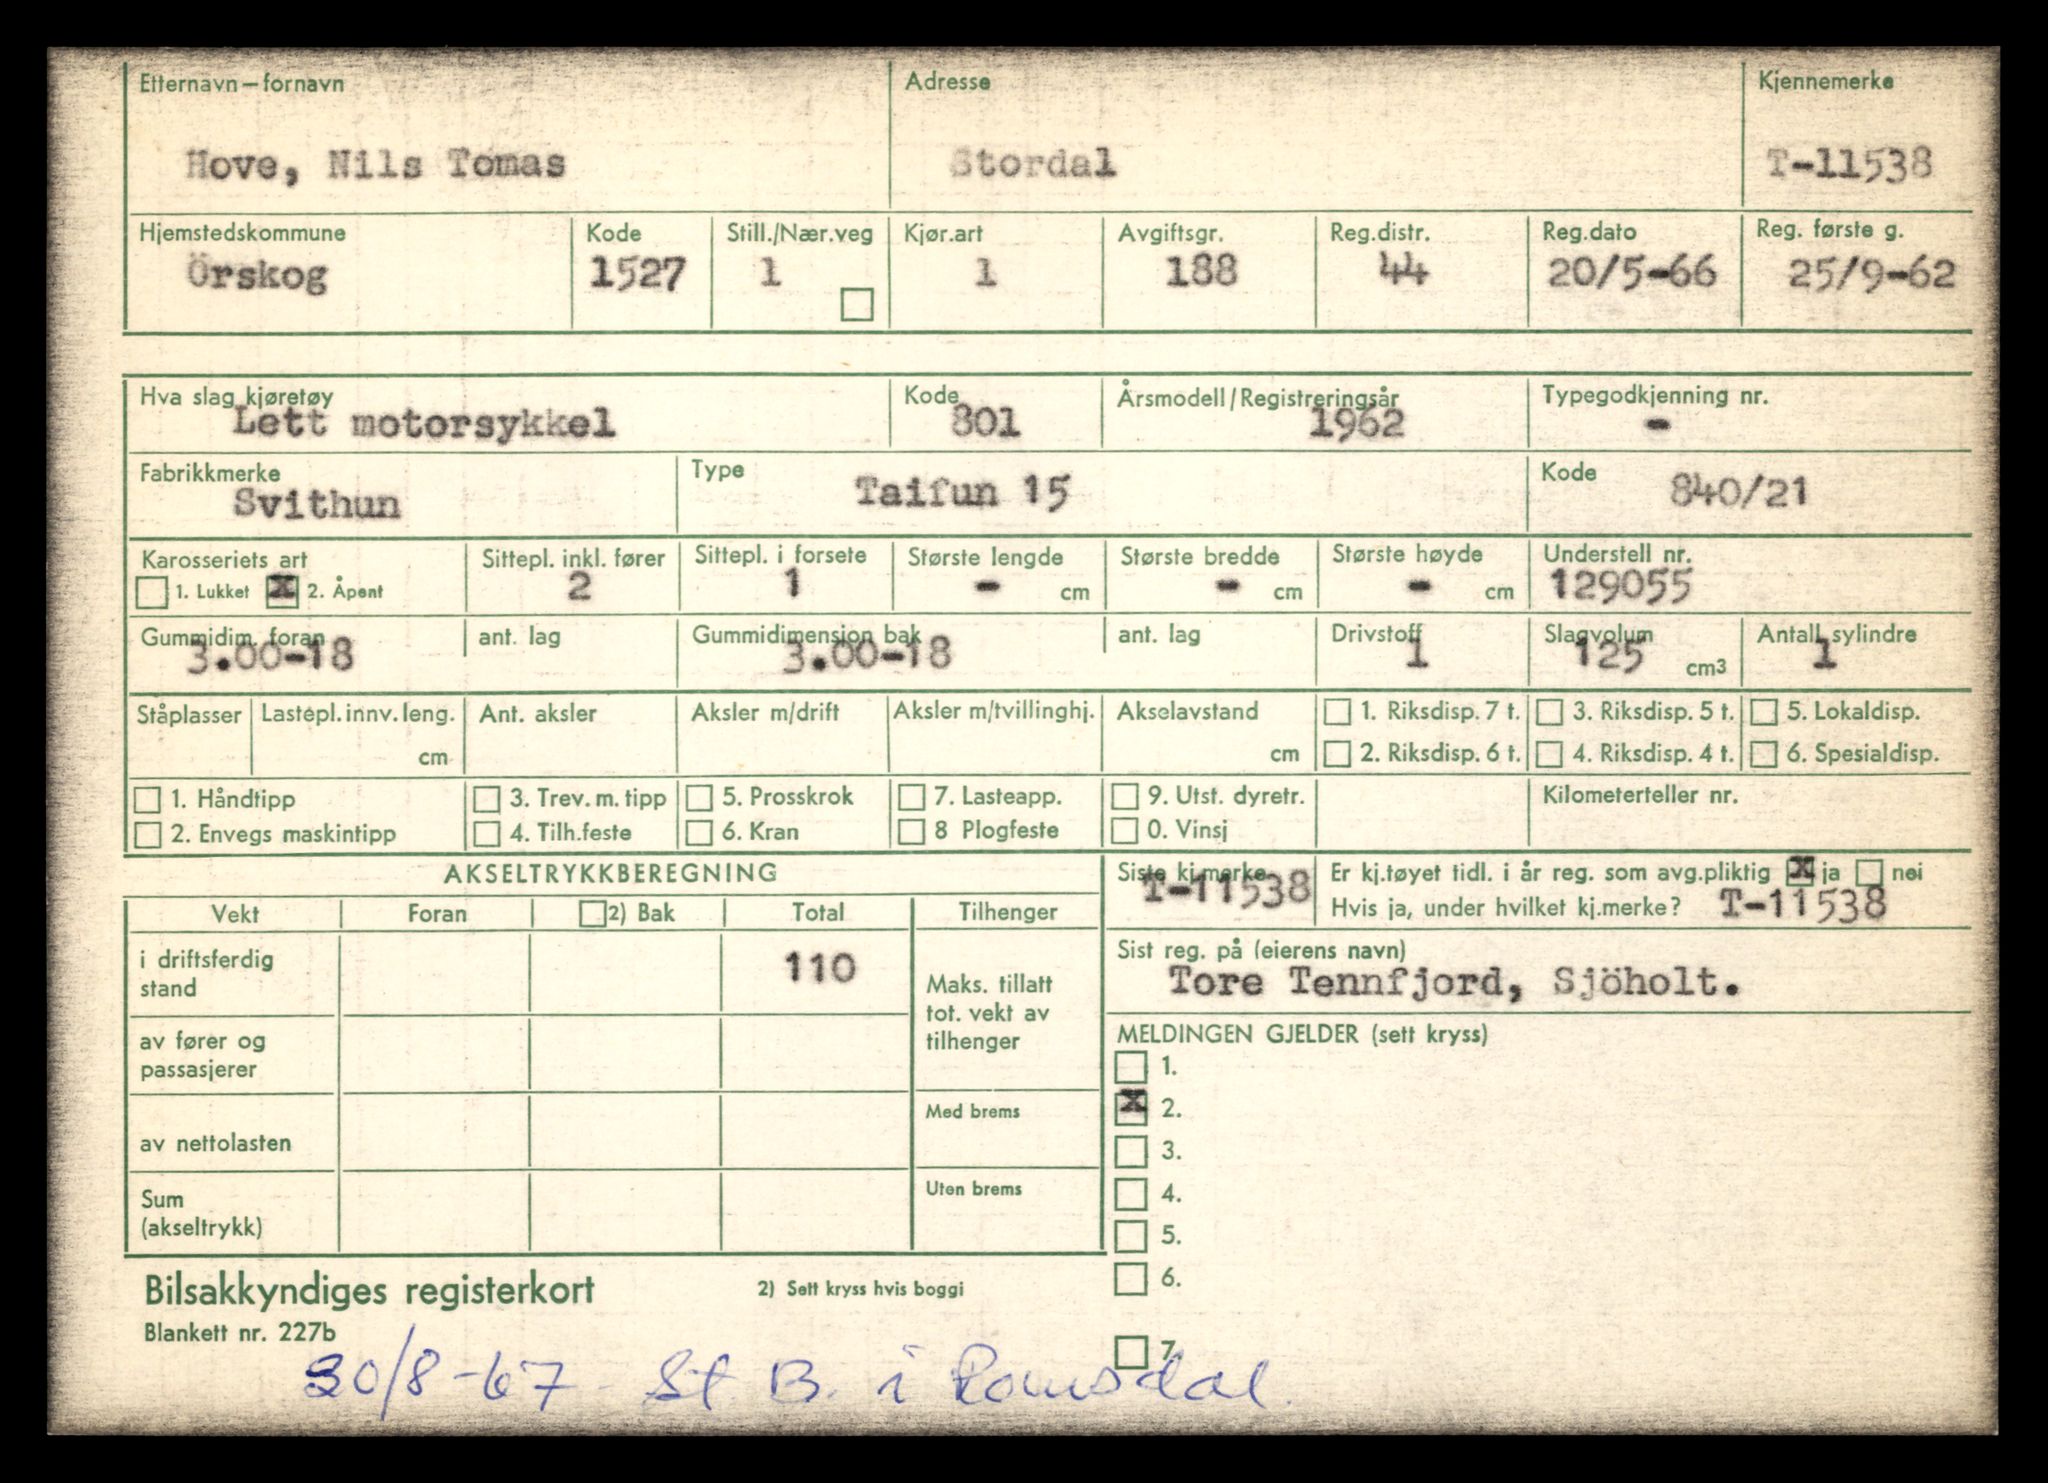 Etternavn—fornavn Adresse Kjennemerke
Hove, Nils Tomas Stordal T-11538
Hjemstedskommune Kode Still./Nær.veg Kjør.art Avgiftsgr. Reg.distr. Reg.dato Reg. første g.
Örskog 1527 1 1 188 44 20/5-66 25/9-62
Hva slag kjøretøy Kode Årsmodell/Registreringsår Typegodkjenning nr.
Lett motorsykkel 801 1962 -
Fabrikkmerke Type Kode
Svithun Taifun 15 840/21
Karosseriets art Sittepl. inkl. fører Sittepl. i forsete Største lengde Største bredde Største høyde Understell nr.
1. Lukket X 2. Åpent 2 1 - cm - cm - cm 129055
Gummidim. foran ant. lag Gummidimension bak ant. lag Drivstoff Slagvolum Antall sylindre
3.00-18 3.00-18 1 125 cm3 1
Ståplasser Lastepl. innv. leng. Ant. aksler Aksler m/drift Aksler m/tvillinghj. Akselavstand 1. Riksdisp. 7 t. 3. Riksdisp. 5 t. 5. Lokaldisp.
cm cm 2. Riksdisp. 6 t. 4. Riksdisp. 4 t. 6. Spesialdisp.
1. Håndtipp 3. Trev. m. tipp 5. Prosskrok 7. Lasteapp. 9. Utst. dyretr. Kilometerteller nr.
2. Envegs maskintipp 4. Tilh.feste 6. Kran 8 Plogfeste 0. Vinsj
AKSELTRYKKBEREGNING
Vekt Foran 2) Bak Total Tilhenger
i driftsferdig stand 110
av fører og passasjerer
av nettolasten
Sum (akseltrykk)
Maks. tillatt tot. vekt av tilhenger
Med brems
Uten brems
Siste kj.merke Er kj.tøyet tidl. i år reg. som avg.pliktig X ja nei
T-11538 Hvis ja, under hvilket kj.merke? T-11538
Sist reg. på (eierens navn)
Tore Tennfjord, Sjöholt.
MELDINGEN GJELDER (sett kryss)
1.
X 2.
3.
4.
5.
6.
7.
Bilsakkyndiges registerkort 2) Sett kryss hvis boggi
Blankett nr. 227b
30/8-67 - St. B. i Romsdal.